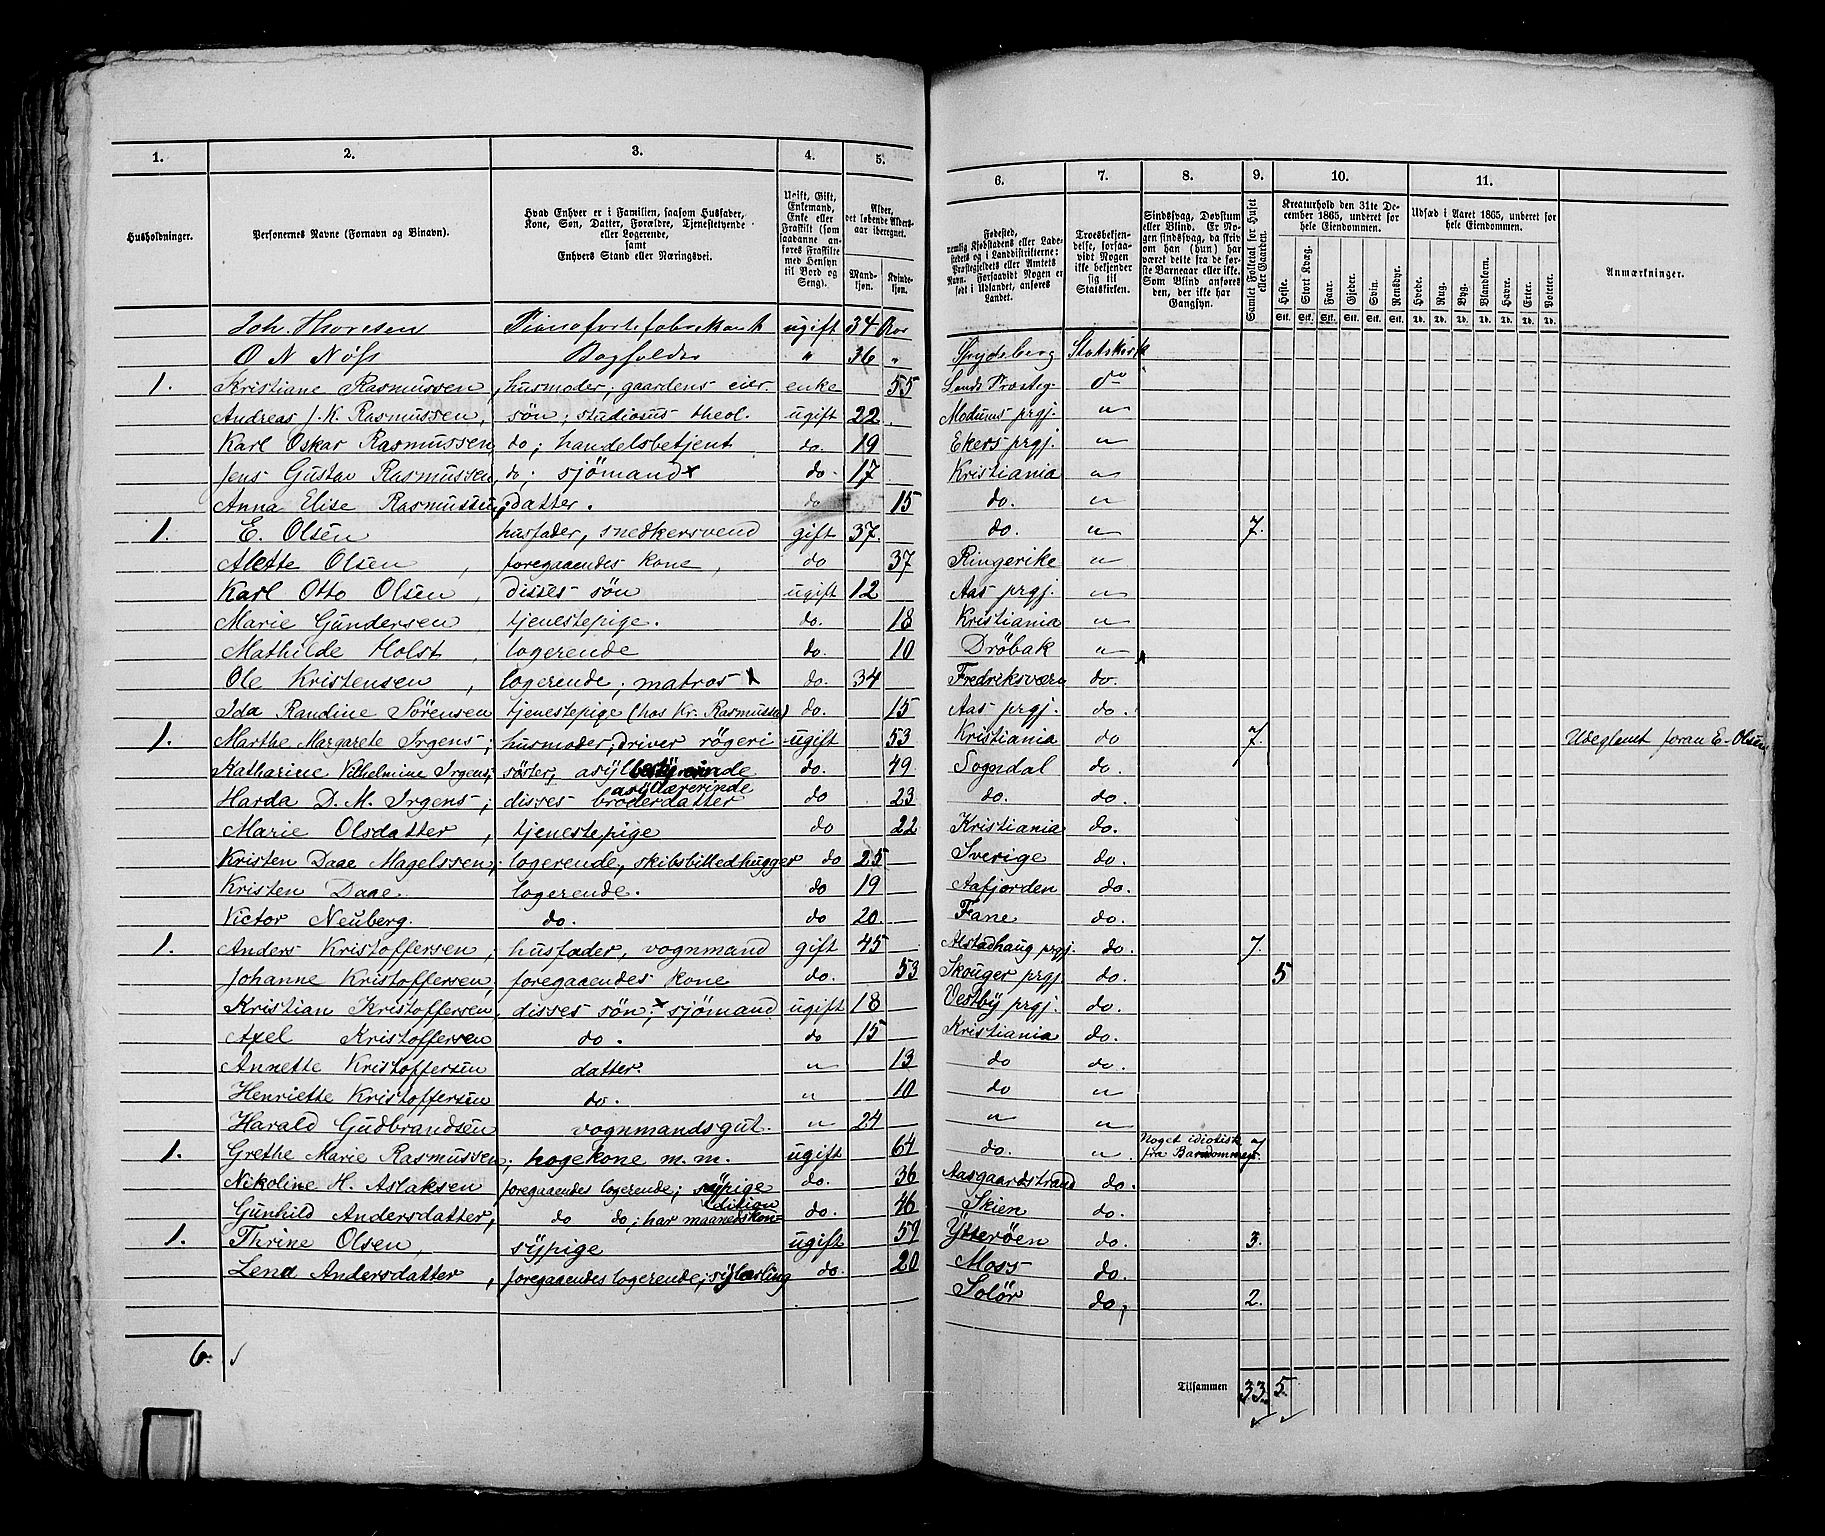 1. 2. 3. 4. 5.
Husholdninger.
Personernes Navne (Fornavn og Binavn).
Hvad Enhver er i Familien, saasom Husfader, Kone, Søn, Datter, Forældre, Tjenestetyende eller Logerende, samt Enhvers Stand eller Næringsvei.
Ugift, Gift, Enkemand, Enke eller Fraskilt (som saadanne anføres Fraskilte med Hensyn til Bord og Seng).
Alder, det løbende Aldersaar iberegnet.
Mandkjøn. Kvindekjøn.
Joh. Thoresen Pianofortefabrikant ugift 34 Aar
O N Nöss Bogholder " 36 "
1. Kristiane Rasmussen, husmoder; gaardens eier. enke 55
Andreas J. K. Rasmussen, sön; studiosus theol. ugift 22
Karl Oskar Rasmussen, do; handelsbetjent do. 19
Jens Gustav Rasmussen, do; sjömand x do 17
Anna Elise Rasmussen, datter. do 15
1. E. Olsen husfader, snedkersvend gift 37.
Alette Olsen, foregaaendes kone, do 37
Karl Otto Olsen, disses sön ugift 12
Marie Gundersen, tjenestepige. do. 18
Mathilde Holst, logerende do. 10
Ole Kristensen, logerende; matros x do. 34
Ida Randine Sörensen tjenestepige (hos Kr. Rasmussen) do. 15
1. Marthe Margarete Irgens; husmoder, driver rögeri ugift 53
Katharine Vilhelmine Irgens; söster, asylbestyrerinde do. 49
asyllærerinde
Harda D. M. Irgens; disses broderdatter do 23
Marie Olsdatter, tjenestepige do 22
Kristen Daae Magelssen; logerende, skibsbilledhugger do 25
Kristen Daae. logerende. do 19
Victor Neuberg. do. do 20.
1. Anders Kristoffersen; husfader, vognmand gift 45
Johanne Kristoffersen, foregaaendes kone do. 53
Kristian Kristoffersen, disses sön; x sjömand ugift 18
Axel Kristoffersen do. do 15
Annette Kristoffersen datter. " 13
Henriette Kristoffersen do. " 10
Harald Gudbrandsen vognmandsgut. " 24
1. Grethe Marie Rasmussen; hogekone m. m. ugift 64
Nikoline H. Aslaksen foregaaendes logerende; sypige do. 36
Gunhild Andersdatter, do do; har maanedskondition do. 46
1. Thrine Olsen, sypige ugift 59
Lena Andersdatter, foregaaendes logerende; sylærling do. 20
6.
6. 7. 8. 9. 10. 11.
Fødested, nemlig Kjøbstadens eller Ladestedets eller i Landdistrikterne: Præstegjeldets eller Amtets Navn. Forsaavidt Nogen er født i Udlandet, anføres Landet.
Troesbekjendelse, forsaavidt Nogen ikke bekjender sig til Statskirken.
Sindssvag, Døvstum eller Blind. Er Nogen sindssvag, da skriv om han (hun) har været dette fra de første Barneaar eller ikke. Som Blind anføres den, der ikke har Gangsyn.
Samlet Folketal for Huset eller Gaarden.
Kreaturhold den 31te December 1865, underet for hele Eiendommen.
Heste. Stort Kvæg. Faar. Gjeder. Svin. Rensdyr.
Stk. Stk. Stk. Stk. Stk. Stk.
Udsæd i Aaret 1865, underet for hele Eiendommen.
Hvede. Rug. Byg. Blandkorn. Havre. Erter. Poteter.
Td. Td. Td. Td. Td. Td. Td.
Anmærkninger.
Spydeberg Statskirk
Lands Præsteg do
Modums prgj. "
Ekers prgj. "
Kristiania "
do. "
do. " 7.
Ringerike "
Aas prgj. "
Kristiania "
Dröbak "
Fredriksværn do.
Aas prgj. do.
Kristiania do 7. Udeglemt foran E. Olsen
Sogndal do.
do. do.
Kristiania do.
Sverige do.
Aafjorden do.
Fane do.
Alstadhaug prgj. do. 7.
Skouger prgj. do. 5
Vestby prgj. do.
Kristiania do.
do do.
do "
" "
do. " Noget idiotisk fra Barndommen. 7
Aasgaardstrand do.
Skien do.
Ytteröen do. 3.
Moss do.
Solör do, 2.
Tilsammen 33 5.